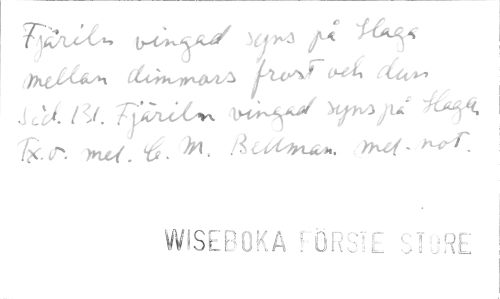 Fjäriln vingad syns på Haga
mellan dimmors frost och dun
Sid. 131. Fjäriln vingad syns på Haga
Tx. o. mel. C. M. Bellman. mel. not.
WISEBOKA FÖRSTE STORE